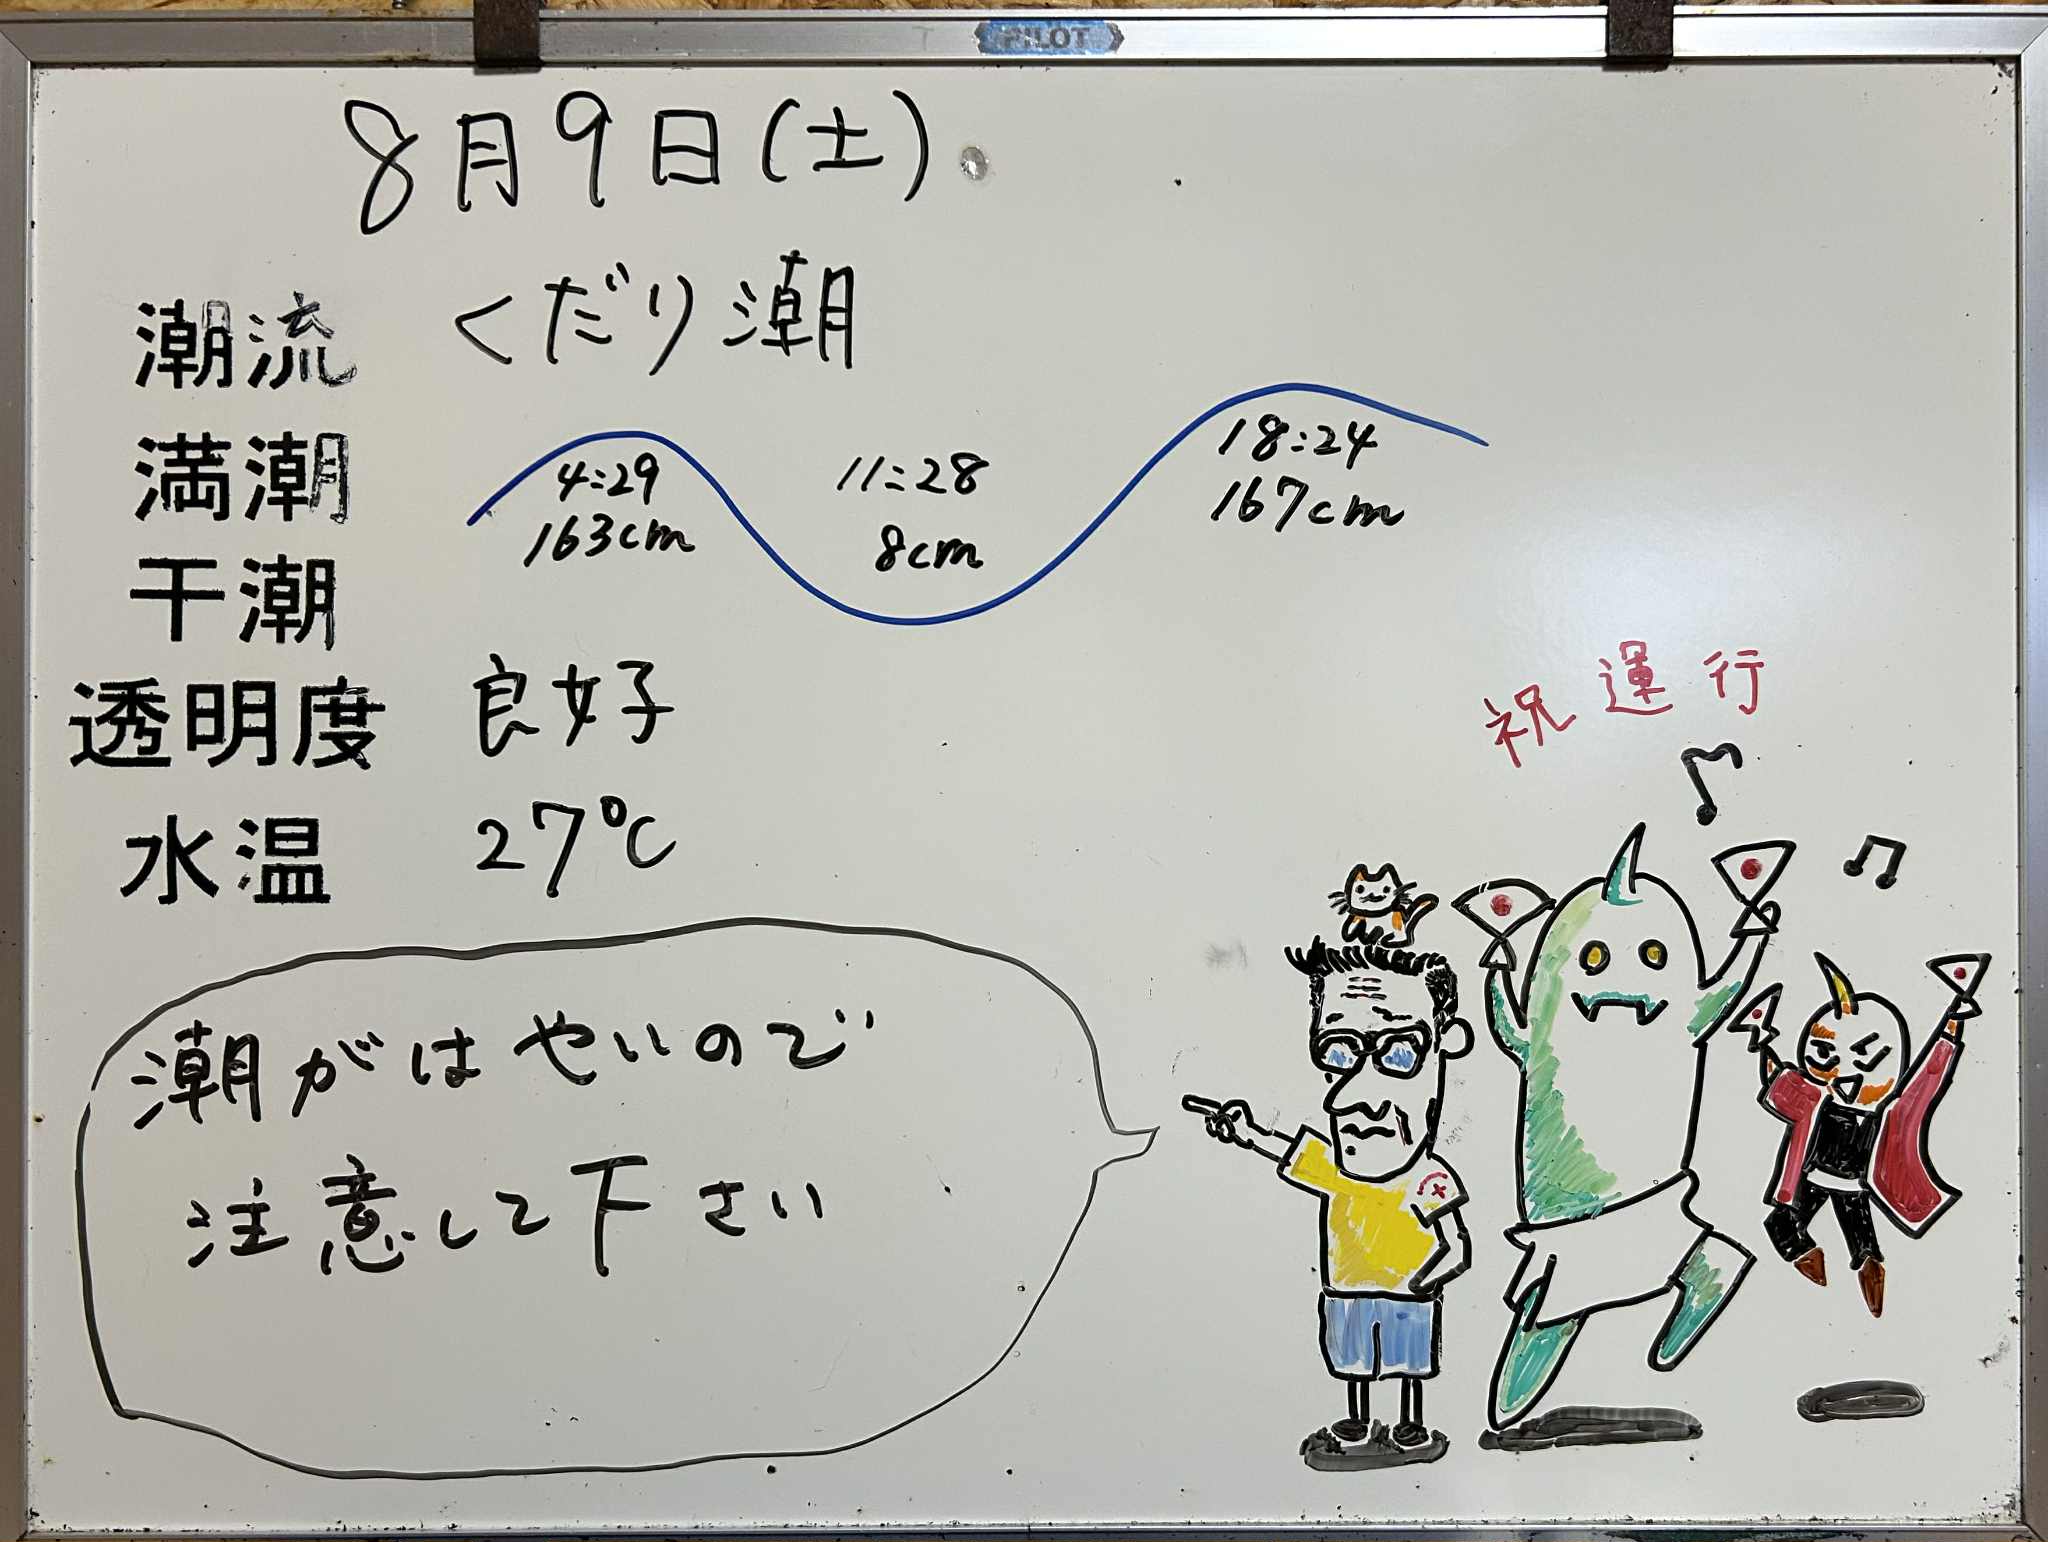 PILOT
8月9日(土)
潮流 くだり潮
満潮 4:29 11:28 18:24
163cm 8cm 167cm
干潮
透明度 良好
水温 27℃
祝運行
潮がはやいので
注意して下さい